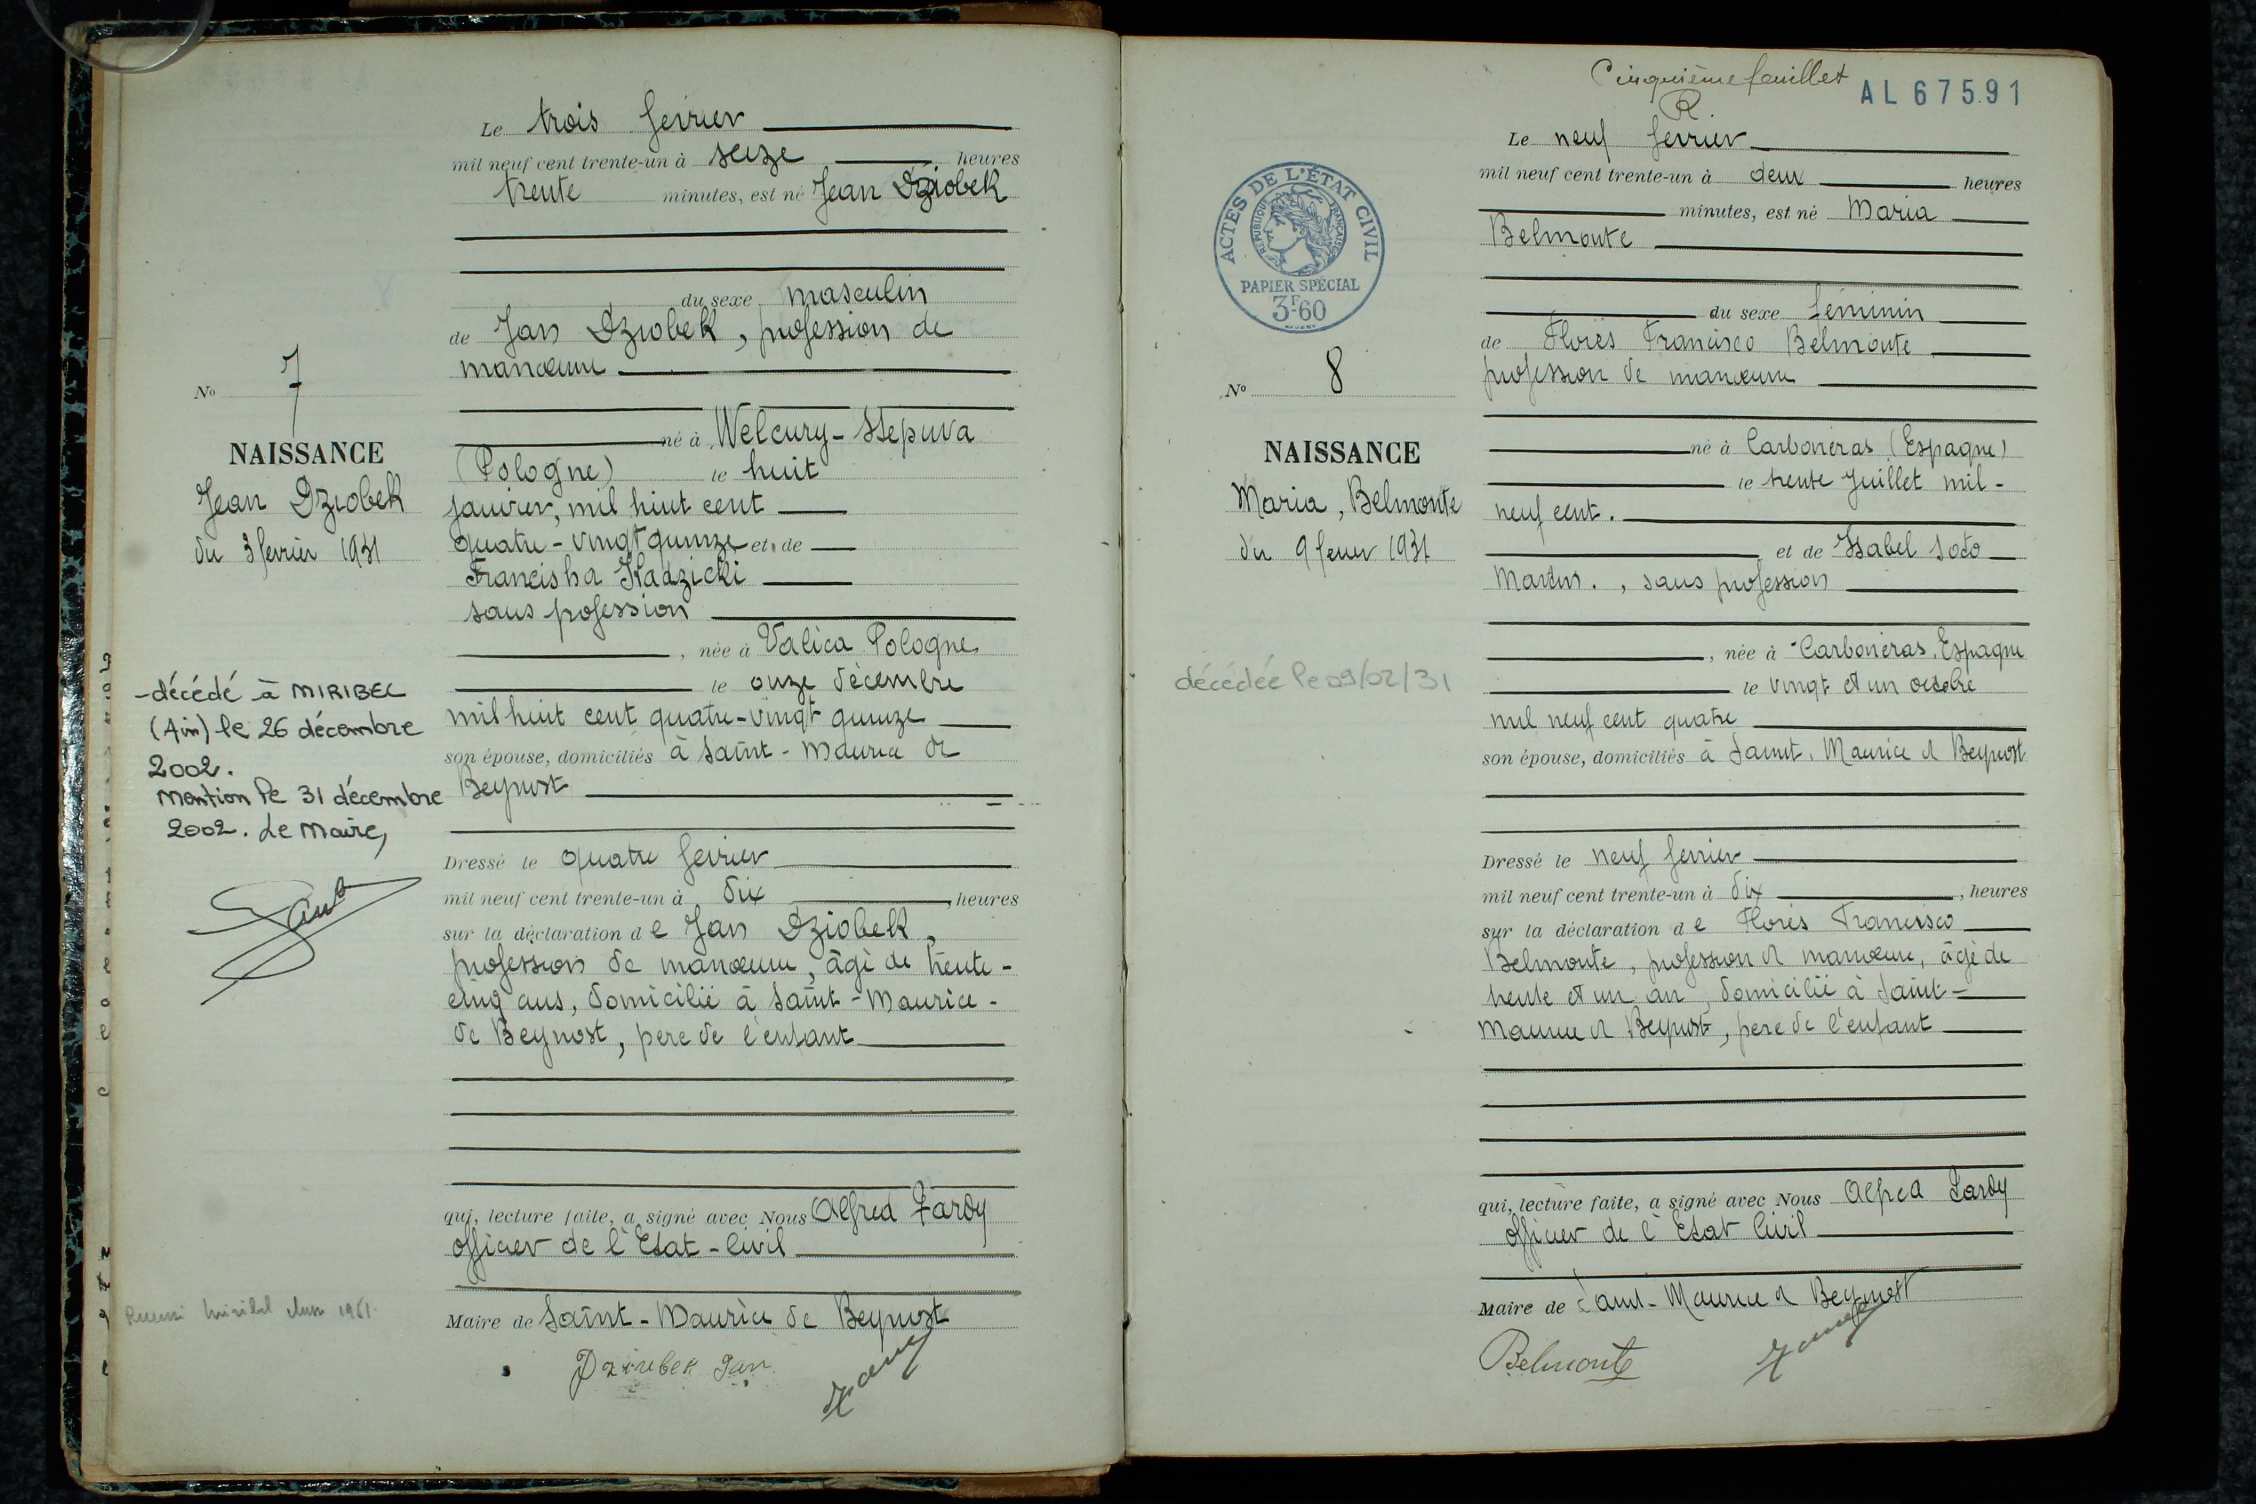 Le trois fevrier
mil neuf cent trente-un à seize heures
trente minutes, est né Jean Dziobek
du sexe masculin
de Jan Dziobek, profession de
manœuvre
né à Welcury - Stepuva
(Pologne) le huit
janvier, mil huit cent
quatre-vingt quinze et de
Francisha Kladzicki
sans profession
, née à Valica Pologne
le onze décembre
mil huit cent quatre-vingt quinze
son épouse, domiciliés à Saint-Maurice de
Beynost
Dressé le quatre fevrier
mil neuf cent trente-un à dix heures
sur la déclaration de Jan Dziobek,
profession de manœuvre, âgé de trente-
cinq ans, domicilié à Saint-Maurice-
de Beynost, père de l'enfant
qui, lecture faite, a signé avec Nous Alfred Zardy
officier de l'Etat-Civil
Maire de Saint-Maurice de Beynost
Dziubek Jan
No 7
NAISSANCE
Jean Dziobek
du 3 fevrier 1931
-décédé à MIRIBEL
(Ain) le 26 décembre
2002.
Mention le 31 décembre
2002. Le Maire,
1961
Cinquième feuillet
AL 67591
R
Le neuf fevrier
mil neuf cent trente-un à deux heures
minutes, est né Maria
Belmonte
du sexe féminin
de Florès Francisco Belmonte
profession de manœuvre
né à Carboneras (Espagne)
le trente Juillet mil-
neuf cent.
et de Isabel Soto
Martin., sans profession
, née à Carboneras, Espagne
le vingt et un octobre
mil neuf cent quatre
son épouse, domiciliés à Saint-Maurice d Beynost
Dressé le neuf fevrier
mil neuf cent trente-un à dix, heures
sur la déclaration de Florès Francisco
Belmonte, profession d manœuvre, âgé de
trente et un an, domicilié à Saint-
Maurice d Beynost, père de l'enfant
qui, lecture faite, a signé avec Nous Alfred Zardy
officier de l'Etat Civil
Maire de Saint-Maurice d Beynost
Belmonte
ACTES DE L'ÉTAT CIVIL
RÉPUBLIQUE FRANÇAISE
PAPIER SPÉCIAL
3F.60
No 8
NAISSANCE
Maria, Belmonte
du 9 fevrier 1931
décédée le 09/02/31